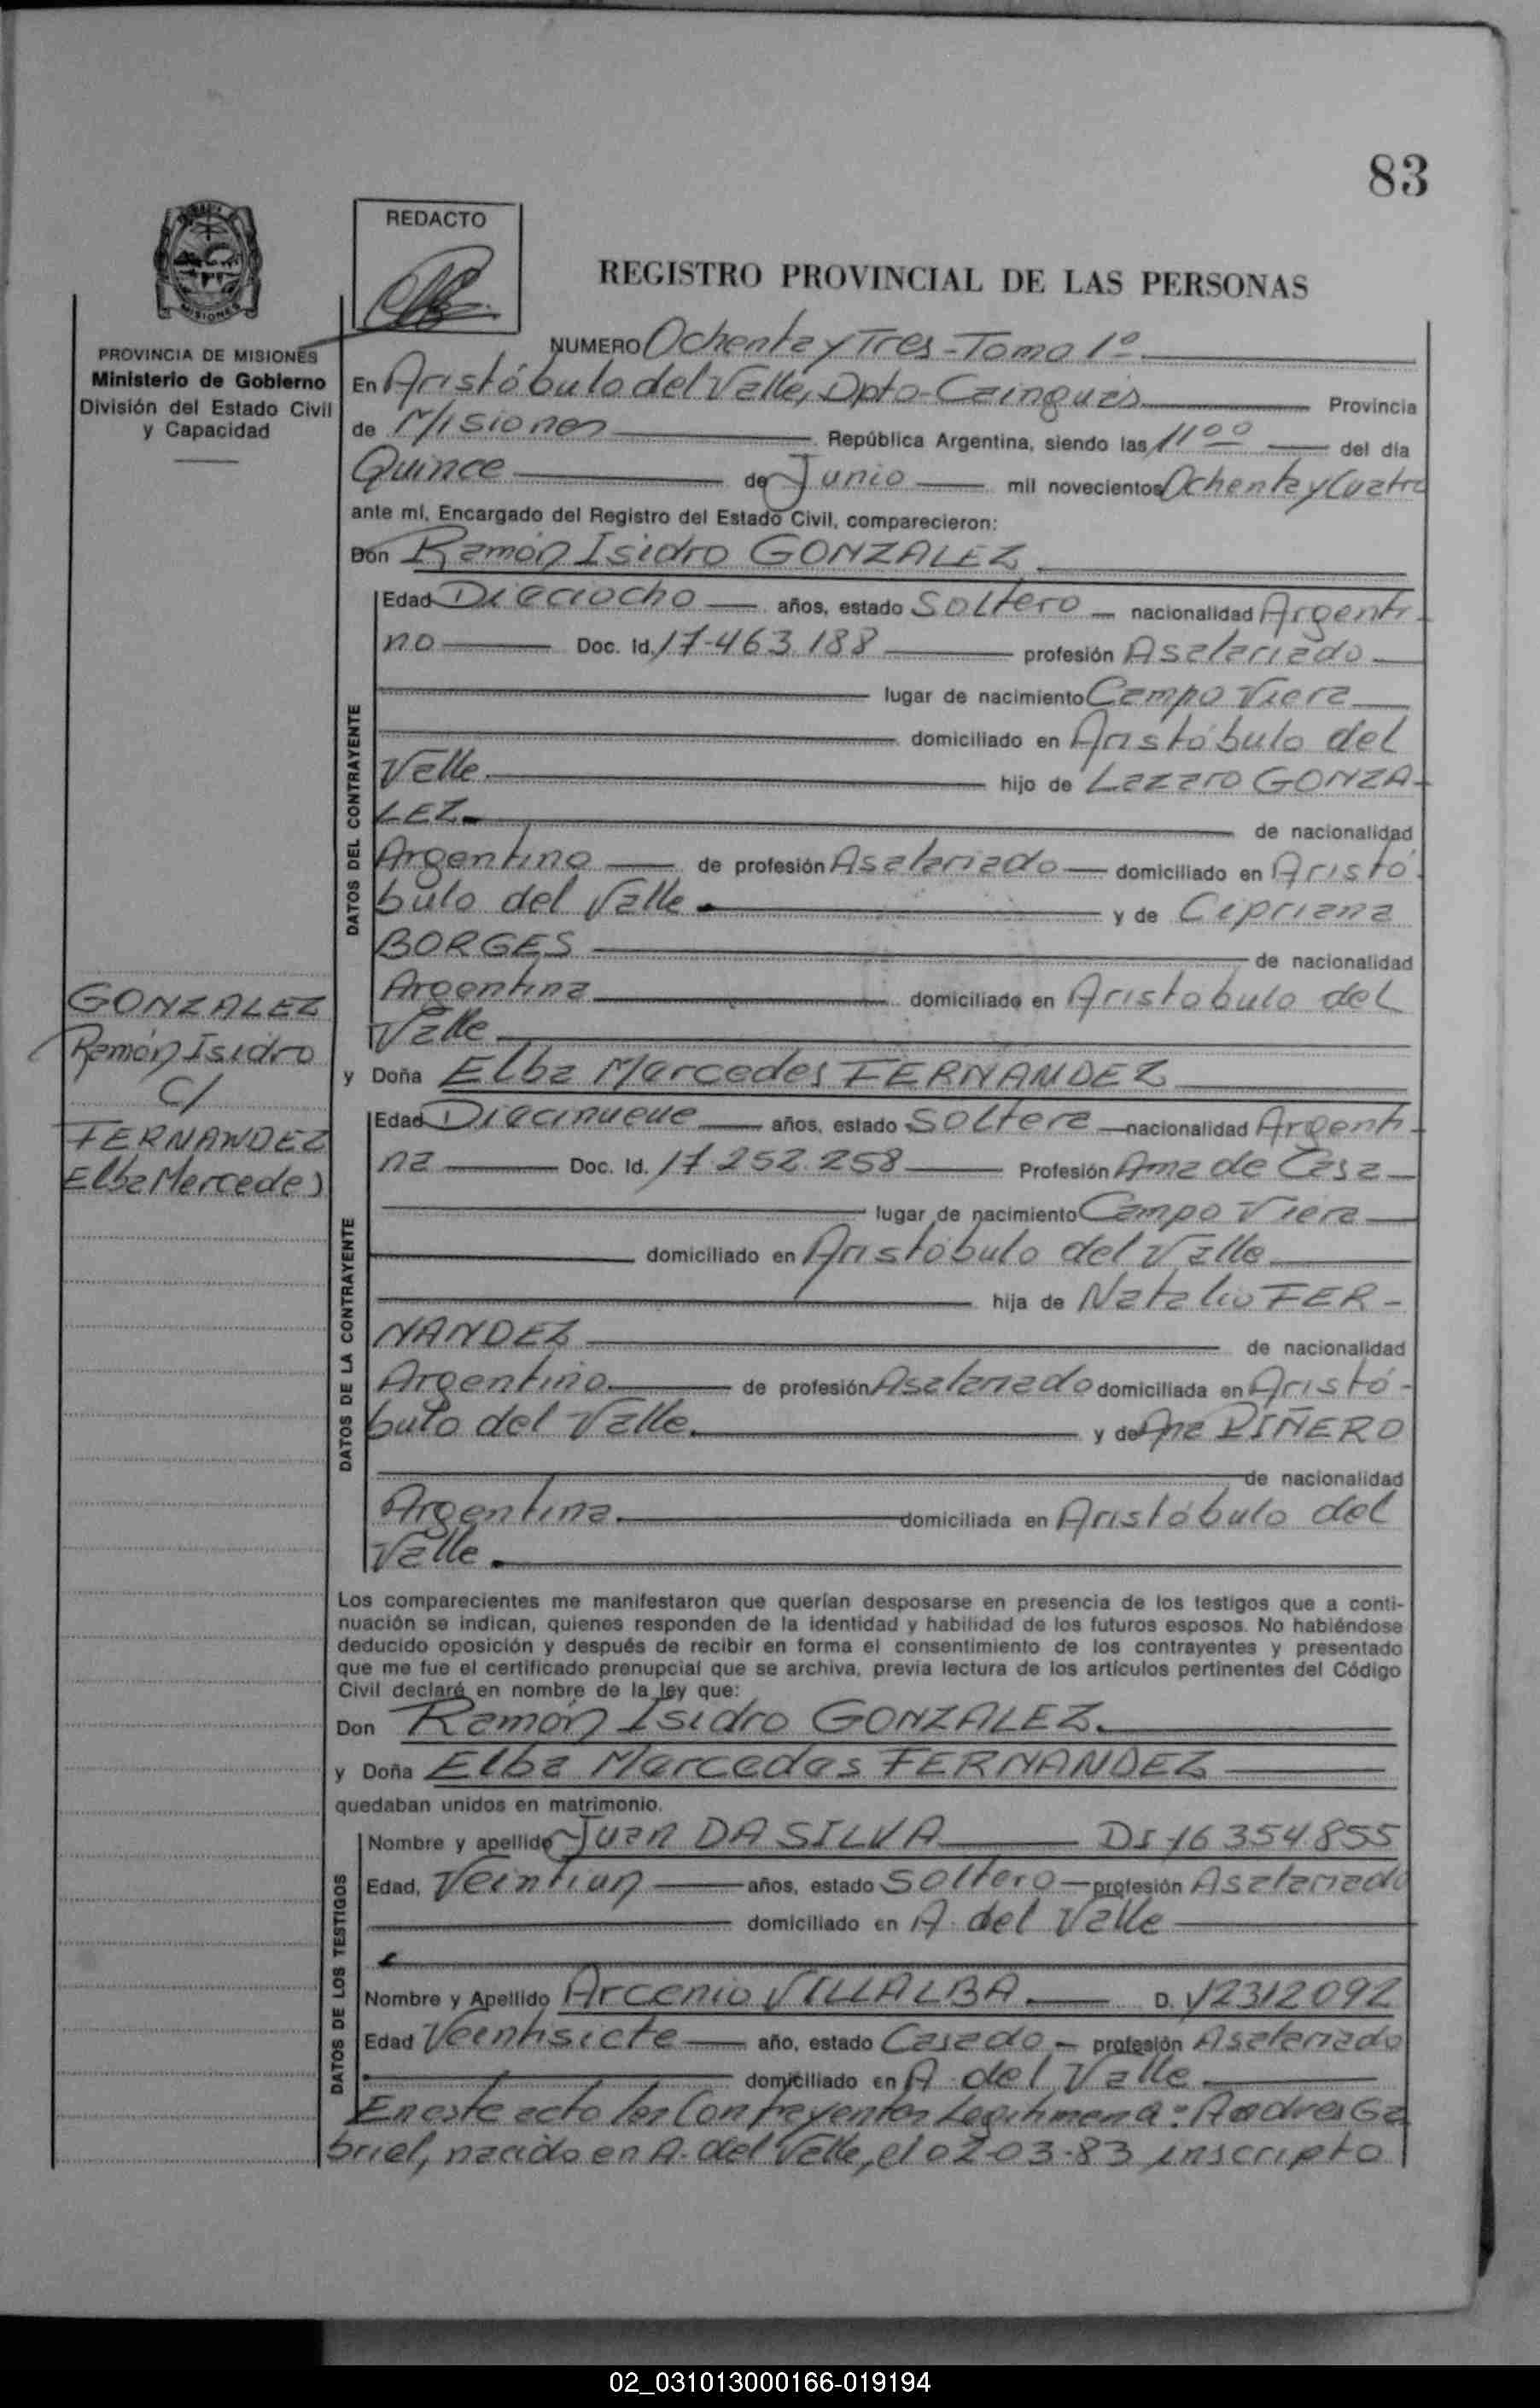 83
REDACTO
REGISTRO PROVINCIAL DE LAS PERSONAS
MISIONES
PROVINCIA DE MISIONES
Ministerio de Gobierno
División del Estado Civil
y Capacidad
NUMERO Ochenta y Tres - Tomo 1º
En Aristóbulo del Valle, Dpto - Cainguás Provincia
de Misiones República Argentina, siendo las 11 00 del día
Quince de Junio mil novecientos Ochenta y Cuatro
ante mí, Encargado del Registro del Estado Civil, comparecieron:
Don Ramón Isidro GONZALEZ
DATOS DEL CONTRAYENTE
Edad Dieciocho años, estado Soltero nacionalidad Argenti-
no Doc. Id. 17.463.188 profesión Asalariado
lugar de nacimiento Campo Viera
domiciliado en Aristóbulo del
Valle hijo de Lazaro GONZA-
LEZ de nacionalidad
Argentino de profesión Asalariado domiciliado en Aristó-
bulo del Valle y de Cipriana
BORGES de nacionalidad
Argentina domiciliado en Aristobulo del
Valle
GONZALEZ
Ramón Isidro
C/
FERNANDEZ
Elba Mercedes
y Doña Elba Mercedes FERNANDEZ
DATOS DE LA CONTRAYENTE
Edad Diecinueve años, estado Soltera nacionalidad Argenti-
na Doc. Id. 17.252.258 Profesión Ama de Casa
lugar de nacimiento Campo Viera
domiciliado en Aristóbulo del Valle
hija de Natalio FER-
NANDEZ de nacionalidad
Argentino de profesión Asalariado domiciliada en Aristó-
bulo del Valle. y de Ana PIÑERO
de nacionalidad
Argentina domiciliada en Aristóbulo del
Valle.
Los comparecientes me manifestaron que querían desposarse en presencia de los testigos que a conti-
nuación se indican, quienes responden de la identidad y habilidad de los futuros esposos. No habiéndose
deducido oposición y después de recibir en forma el consentimiento de los contrayentes y presentado
que me fue el certificado prenupcial que se archiva, previa lectura de los artículos pertinentes del Código
Civil declaré en nombre de la ley que:
Don Ramón Isidro GONZALEZ.
y Doña Elba Mercedes FERNANDEZ
quedaban unidos en matrimonio.
DATOS DE LOS TESTIGOS
Nombre y apellido Juan DA SILVA DI 16 354.855
Edad, Veintiun años, estado Soltero profesión Asalariado
domiciliado en A. del Valle
Nombre y Apellido Arcenio VILLALBA. D. 12312092
Edad Veintisiete año, estado Casado profesión Asalariado
domiciliado en A. del Valle.
En este acto los Contrayentes Legitiman a: Andres Ga
briel, nacido en A. del Valle, el 02-03-83 inscripto
02_031013000166-019194